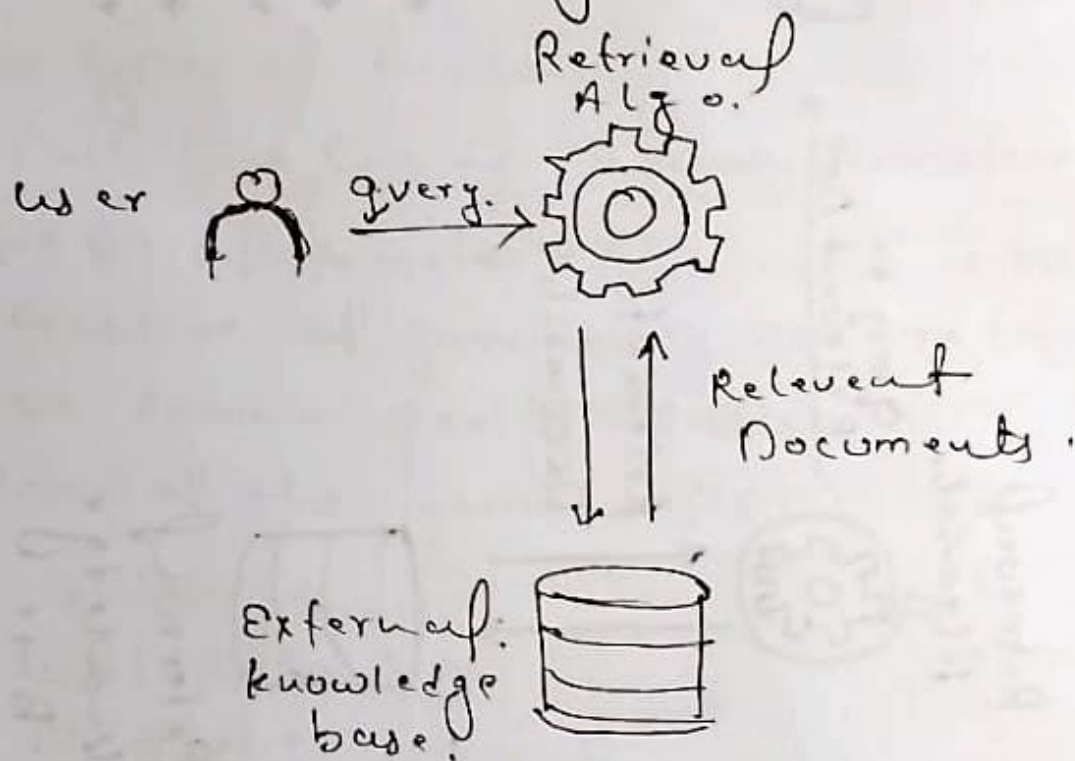 Retrieval
Algo.
user
query.
Relevent
Documents.
External
knowledge
base.